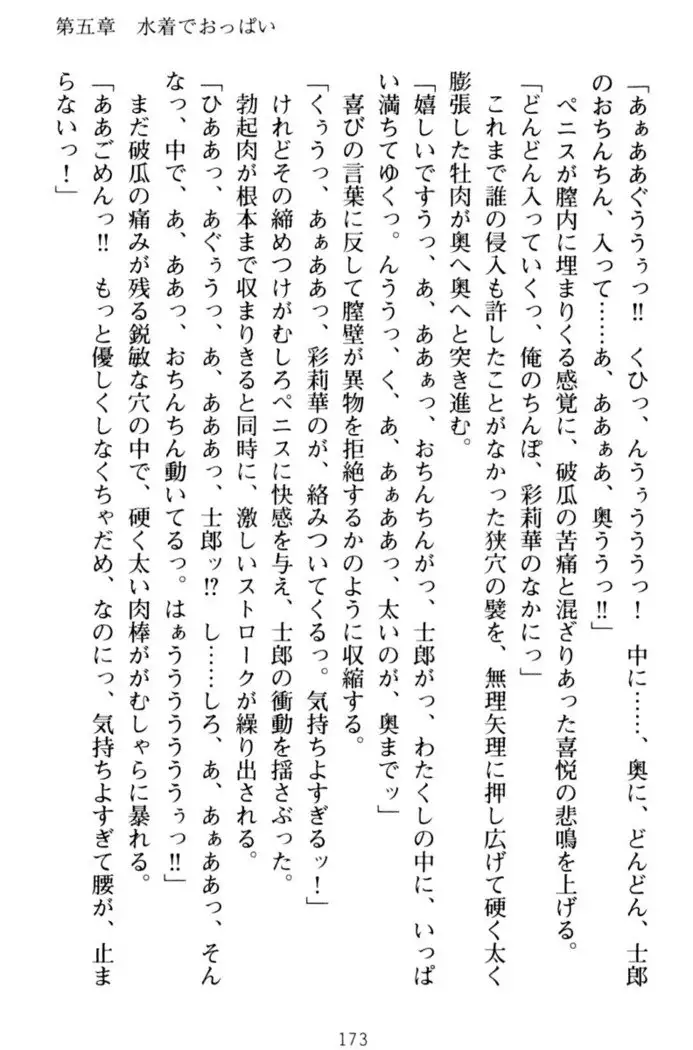 第五章　水着でおっぱい
「あぁああぐううぅっ‼　くひっ、んうぅうううっ！　中に……、奥に、どんどん、士郎
のおちんちん、入って……あ、ああぁあ、奥ううっ‼」
ペニスが膣内に埋まりくる感覚に、破瓜の苦痛と混ざりあった喜悦の悲鳴を上げる。
「どんどん入っていくっ、俺のちんぽ、彩莉華のなかにっ」
これまで誰の侵入も許したことがなかった狭穴の襞を、無理矢理に押し広げて硬く太く
膨張した牡肉が奥へ奥へと突き進む。
「嬉しいですうっ、あ、ああぁっ、おちんちんがっ、士郎がっ、わたくしの中に、いっぱ
い満ちてゆくっ。んううっ、く、あ、あぁああっ、太いのが、奥までッ」
喜びの言葉に反して膣壁が異物を拒絶するかのように収縮する。
「くぅうっ、あぁああっ、彩莉華のが、絡みついてくるっ。気持ちよすぎるッ！」
けれどその締めつけがむしろペニスに快感を与え、士郎の衝動を揺さぶった。
勃起肉が根本まで収まりきると同時に、激しいストロークが繰り出される。
「ひああっ、あぐぅうっ、あ、あああっ、士郎ッ⁉　し……しろ、あ、あぁああっ、そん
なっ、中で、あ、ああっ、おちんちん動いてるっ。はぁうううううううぅっ‼」
まだ破瓜の痛みが残る鋭敏な穴の中で、硬く太い肉棒ががむしゃらに暴れる。
「ああごめんっ‼　もっと優しくしなくちゃだめ、なのにっ、気持ちよすぎて腰が、止ま
らないっ！」
173